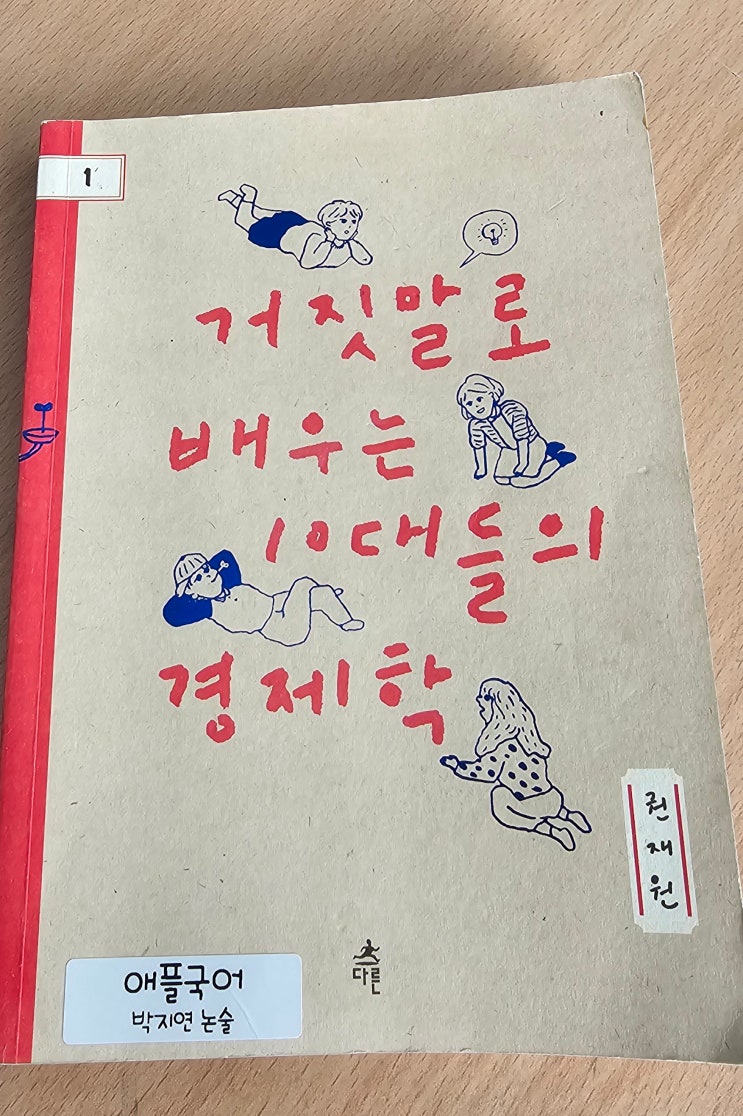 1
거짓말로
배우는
10대들의
경제학
권재원
다른
애플국어
박지연 논술